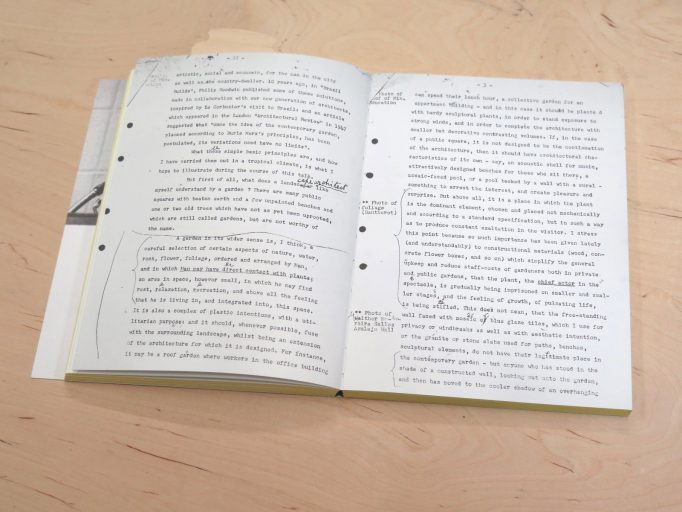 - 11 -
artistic, social and economic, for the man in the city
as well as the country-dweller. 10 years ago, in "Brazil
Builds", Philip Goodwin published some of these solutions,
made in collaboration with our new generation of architects,
inspired by Le Corbusier's visit to Brazil; and an article
which appeared in the London "Architectural Review" in 1947
suggested that "once the idea of the contemporary garden,
planned according to Burle Marx's principles, has been
postulated, its variations need have no limits".
What these simple basic principles are, and how
I have carried them out in a tropical climate, is what I
hope to illustrate during the course of this talk.
But first of all, what does a landscape architect like
myself understand by a garden ? There are many public
squares with beaten earth and a few unpainted benches and
one or two old trees which have not as yet been uprooted,
which are still called gardens, but are not worthy of
the name.
A garden in its wider sense is, I think, a
careful selection of certain aspects of nature, water,
rock, flower, foliage, ordered and arranged by Man,
and in which Man may have direct contact with plants;
an area in space, however small, in which he may find
rest, relaxation, recreation, and above all the feeling
that he is living in, and integrated into, this space.
It is also a complex of plastic intentions, with a uti-
litarian purpose: and it should, whenever possible, fuse
with the surrounding landscape, whilst being an extension
of the architecture for which it is designed. For instance,
it may be a roof garden where workers in the office building
- 3 -
can spend their lunch hour, a collective garden for an
appartment building - and in this case it should be planted
with hardy sculptural plants, in order to stand exposure to
strong winds, and in order to complete the architecture with
smaller but decorative contrasting volumes. If, in the case
of a public square, it is not designed to be the continuation
of the architecture, then it should have architectural cha-
racteristics of its own - say, an acoustic shell for music,
attractively designed benches for those who sit there, a
mosaic-faced pool, or a pool backed by a wall with a mural -
something to arrest the interest, and create pleasure and
surprise. But above all, it is a place in which the plant
** Photo of
foliage
(Gautherot)
is the dominant element, chosen and placed not mechanically
and according to a standard specification, but in such a way
as to produce constant exultation in the visitor. I stress
this point because so much importance has been given lately
(and understandably) to construction materials (wood, con-
crete flower boxes, and so on) which simplify the general
upkeep and reduce staff-costs of gardeners both in private
and public gardens, that the plant, the chief actor in the
spectacle, is gradually being imprisoned on smaller and smal-
ler stages, and the feeling of growth, of pulsating life,
is being stifled. This does not mean, that the free-standing
** Photo of
Walther Mo-
reira Salles
Azulejo Wall
wall faced with mosaic or blue glass tiles, which I use for
privacy or windbreaks as well as with aesthetic intention,
or the granite or stone slabs used for paths, benches,
sculptural elements, do not have their legitimate place in
the contemporary garden - but anyone who has stood in the
shade of a constructed wall, looking out onto the garden,
and then has moved to the cooler shadow of an overhanging